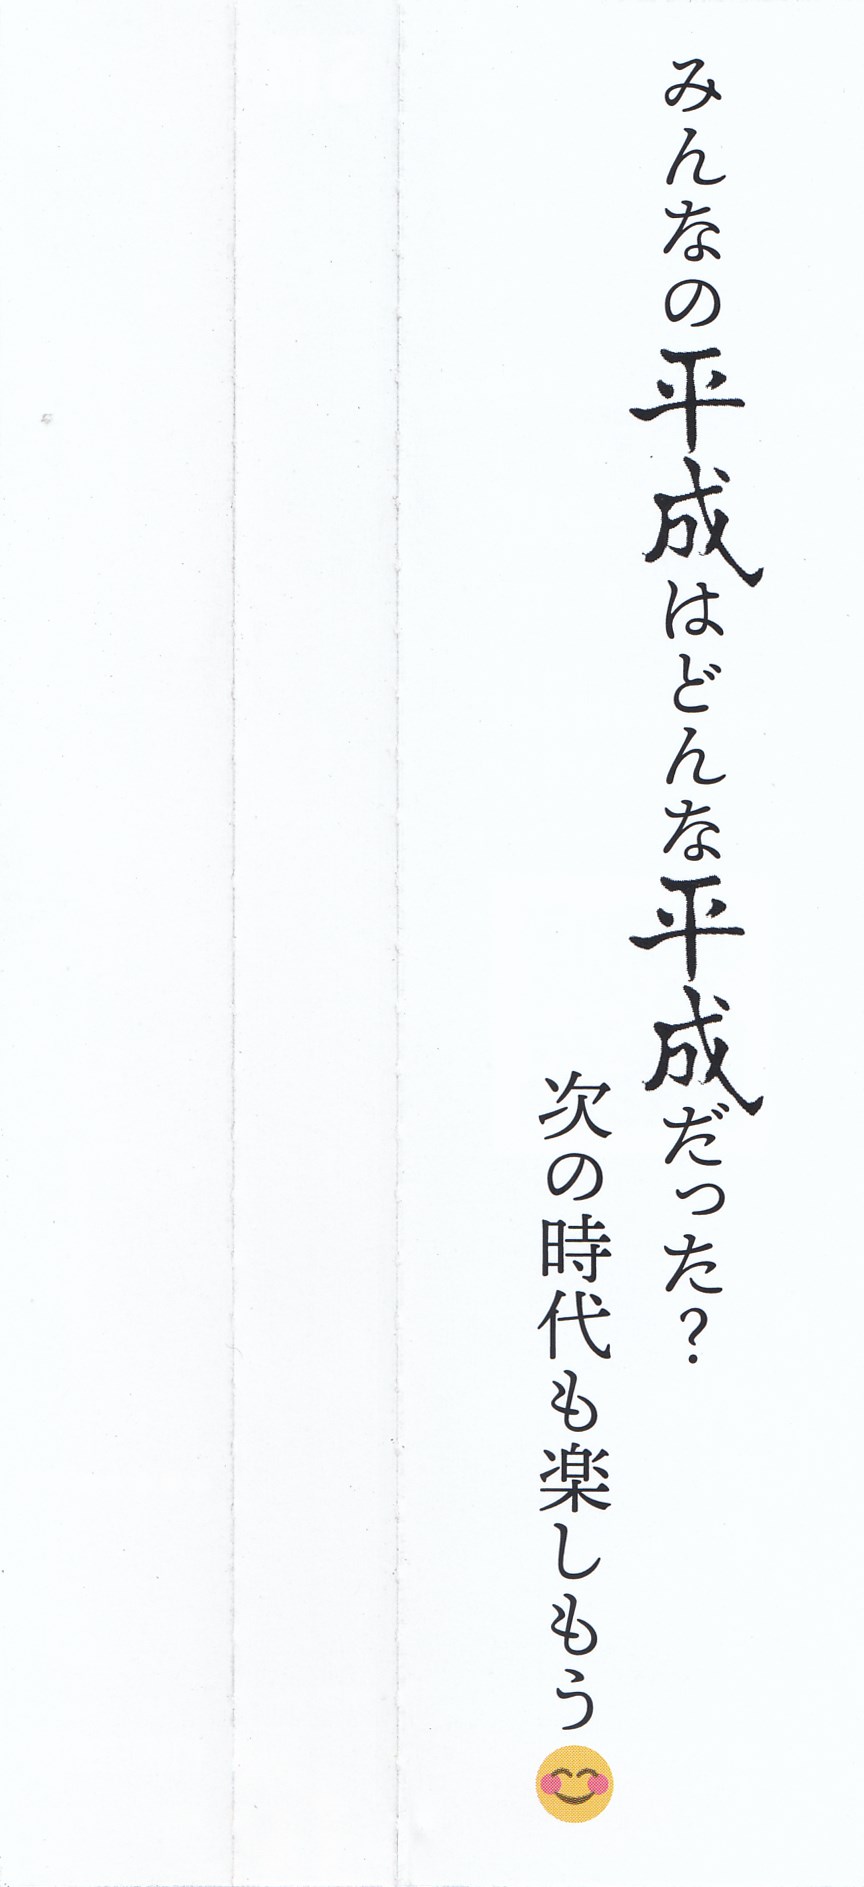 みんなの平成はどんな平成だった?
次の時代も楽しもう😊